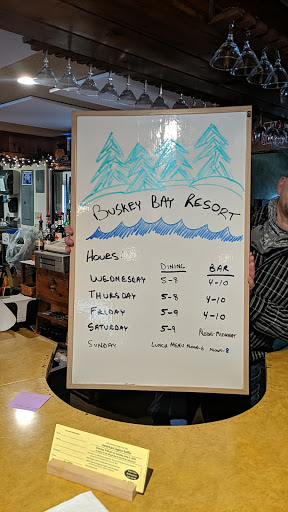 BUSKEY BAY RESORT
HOURS
DINING BAR
WEDNESDAY 5-8 4-10
THURSDAY 5-8 4-10
FRIDAY 5-9 4-10
SATURDAY 5-9 NOON-MIDNIGHT
SUNDAY LUNCH MENU NOON-6 NOON-8